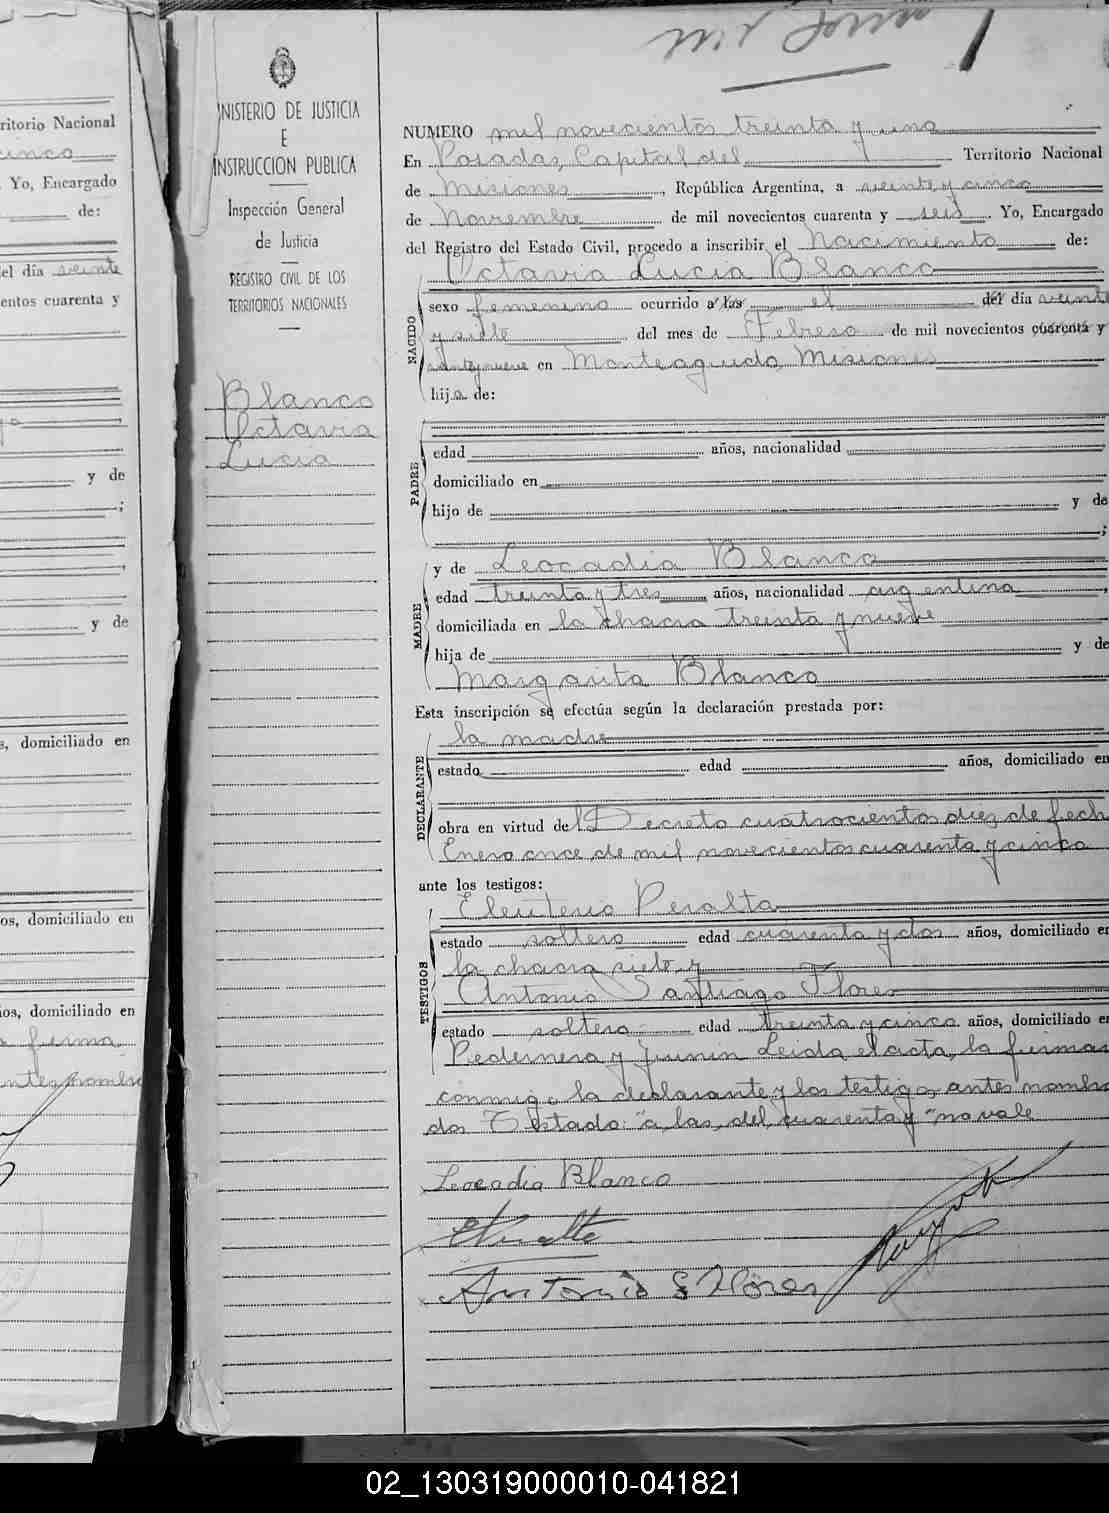 ritorio Nacional
cinco
Yo, Encargado
de:
el día veinte
entos cuarenta y
y de
;
y de
s, domiciliado en
os, domiciliado en
ios, domiciliado en
firma
antes nombra
MINISTERIO DE JUSTICIA
E
INSTRUCCION PUBLICA
Inspección General
de Justicia
REGISTRO CIVIL DE LOS
TERRITORIOS NACIONALES
Blanco
Octavia
Lucia
NUMERO mil novecientos treinta y uno
En Posadas, Capital del Territorio Nacional
de Misiones, República Argentina, a veinte y cinco
de Noviembre de mil novecientos cuarenta y seis. Yo, Encargado
del Registro del Estado Civil, procedo a inscribir el Nacimiento de:
NACIDO
Octavia Lucia Blanco
sexo femenino ocurrido a las el del día veinte
y siete del mes de Febrero de mil novecientos cuarenta y
veinte y nueve en Monteagudo, Misiones
hija de:
PADRE
edad años, nacionalidad
domiciliado en
hijo de y de
;
MADRE
y de Leocadia Blanco
edad treinta y tres años, nacionalidad argentina,
domiciliada en la chacra treinta y nueve
hija de y de
Margarita Blanco
Esta inscripción se efectúa según la declaración prestada por:
DECLARANTE
la madre
estado edad años, domiciliado en
obra en virtud del Decreto cuatrocientos diez de fech
Enero once de mil novecientos cuarenta y cinco
ante los testigos:
TESTIGOS
Eleuterio Peralta
estado soltero edad cuarenta y dos años, domiciliado en
la chacra siete y
Antonio Santiago Flores
estado soltero edad treinta y cinco años, domiciliado en
Pedernera y Junin Leida el acta, la firman
conmigo la declarante y los testigos antes nombra
dos Testado: "a, las, del, cuarenta y" no vale
Leocadia Blanco
EPeralta
Antonio S Flores
02_130319000010-041821